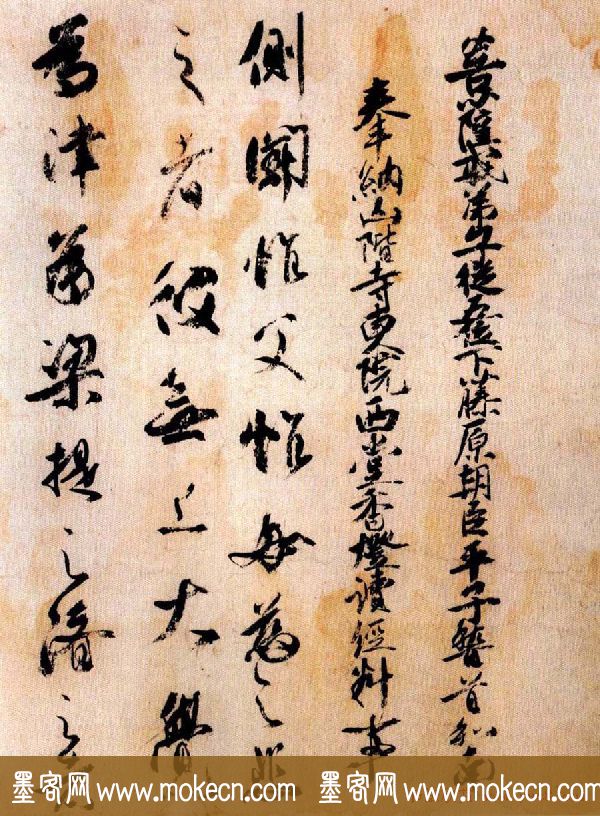 菩薩戒弟子從五位下藤原朝臣平子稽首和南
奉納山階寺東院西堂香燈讀經料事
側聞怙父恃母為之悲
之者彼無上大覺
為津為梁提之濟之
墨客网 www.mokecn.com 墨客网 www.mokecn.com